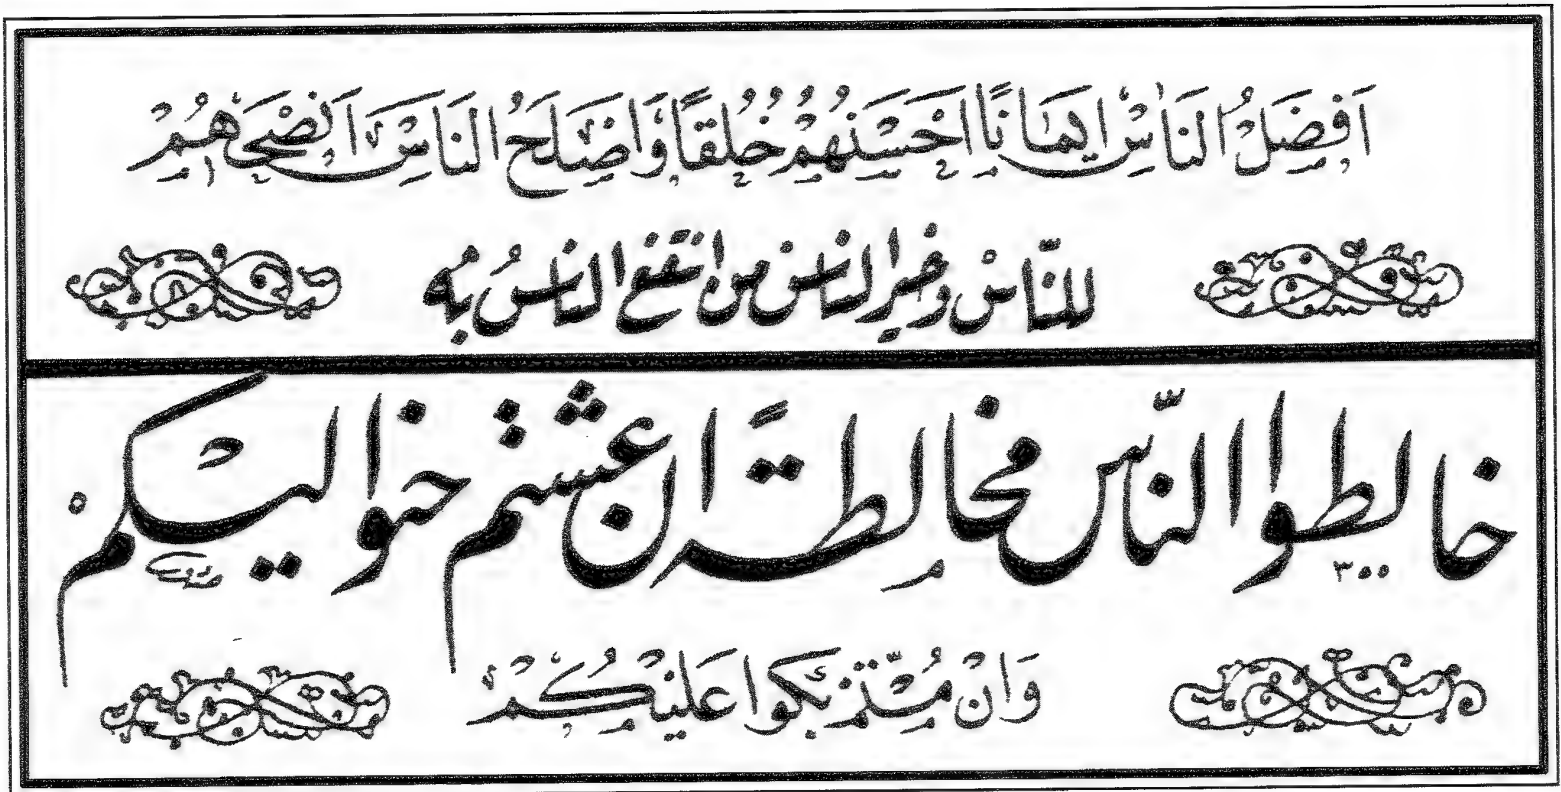 اَفضَلُ النَاسِ ايمَانًا اَحْسَنُهُمْ خُلُقًا وَاَصْلَحُ النَاسِ اَنْصَحُهُمْ
للنّاسْ وخيرالناس من انتفع الناسُ بُه
خالطوا النّاس مخالطةً ان عشتم حنوا ليكم
٣٠٠
وَاِنْ مُتّمْ بَكوا عَلَيْكُمْ